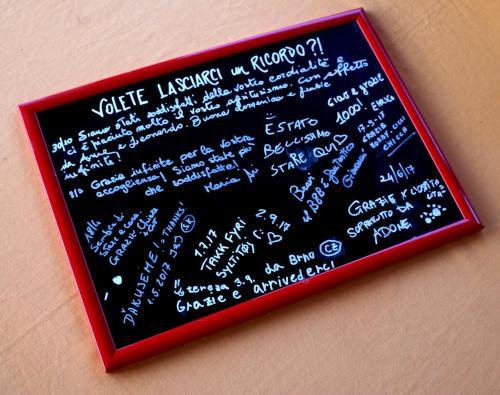 VOLETE LASCIARCI un RICORDO?!
30/10 Siamo stati soddisfatti della vostra cordialità e
ci è piaciuto molto il vostro agriturismo. Con affetto
da Anne e Leonardo. Buona Domenica e
infinite!
Grazie infinite per la vostra
accoglienza! Siamo state più
che soddisfatte!
Maria
È STATO
BELLISSIMO
STARE QUI♡
Ciao e grazie
1000!
17.9.17
GRAZIE
CHICCA
24/6/17
GRAZIE X L'OSPITA
LITÀ
SOPRATTUTTO DA
ADONE
GRAZIE
ĎAKUJEME! =THANKS!
1.5.2017 SK
1.7.17
TAKK FYRI
2.9.17
tereza 3.9. da Brno CZ
Grazie e arrivederci